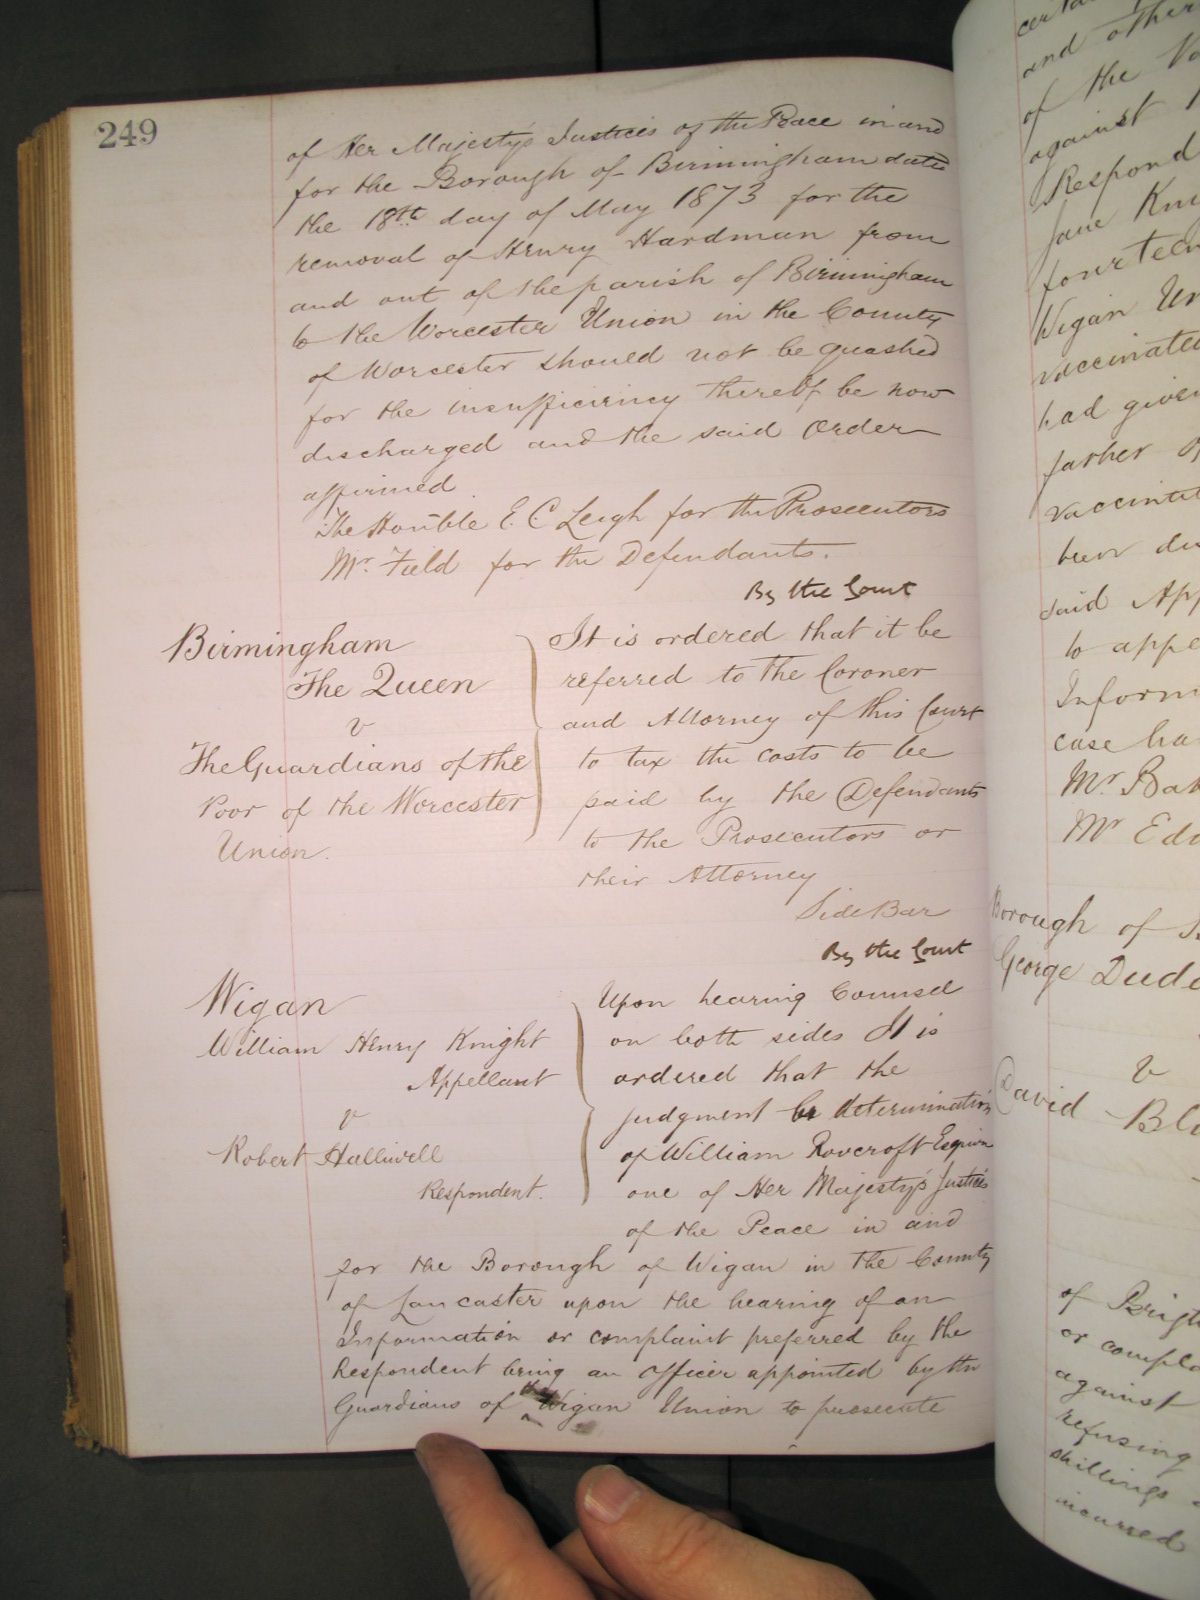 249
of Her Majesty's Justices of the Peace in and
for the Borough of Birmingham dated
the 18th day of May 1873 for the
removal of Henry Hardman from
and out of the parish of Birmingham
to the Worcester Union in the County
of Worcester should not be quashed
for the insufficiency thereof be now
discharged and the said Order
affirmed
The Honble E. C Leigh for the Prosecutors
Mr. Field for the Defendants.
By the Court
Birmingham
The Queen
v
The Guardians of the
Poor of the Worcester
Union.
It is ordered that it be
referred to the Coroner
and Attorney of this Court
to tax the costs to be
paid by the Defendants
to the Prosecutors or
their Attorney
Side Bar
By the Court
Wigan
William Henry Knight
Appellant
v
Robert Halliwell
Respondent.
Upon hearing Counsel
on both sides It is
ordered that the
judgment or determination
of William Roocroft Esquire
one of Her Majesty's Justices
of the Peace in and
for the Borough of Wigan in the County
of Lancaster upon the hearing of an
Information or complaint preferred by the
Respondent being an Officer appointed by the
Guardians of the Wigan Union to prosecute
and other
of the
against
Respond
Jane
fourteen
Wigan Un
vaccinated
had given
father
been
said App
to appe
Inform
case ha
Mr
Mr
Borough of
George
v
David
of
or compla
against
refusing
shillings
incurred